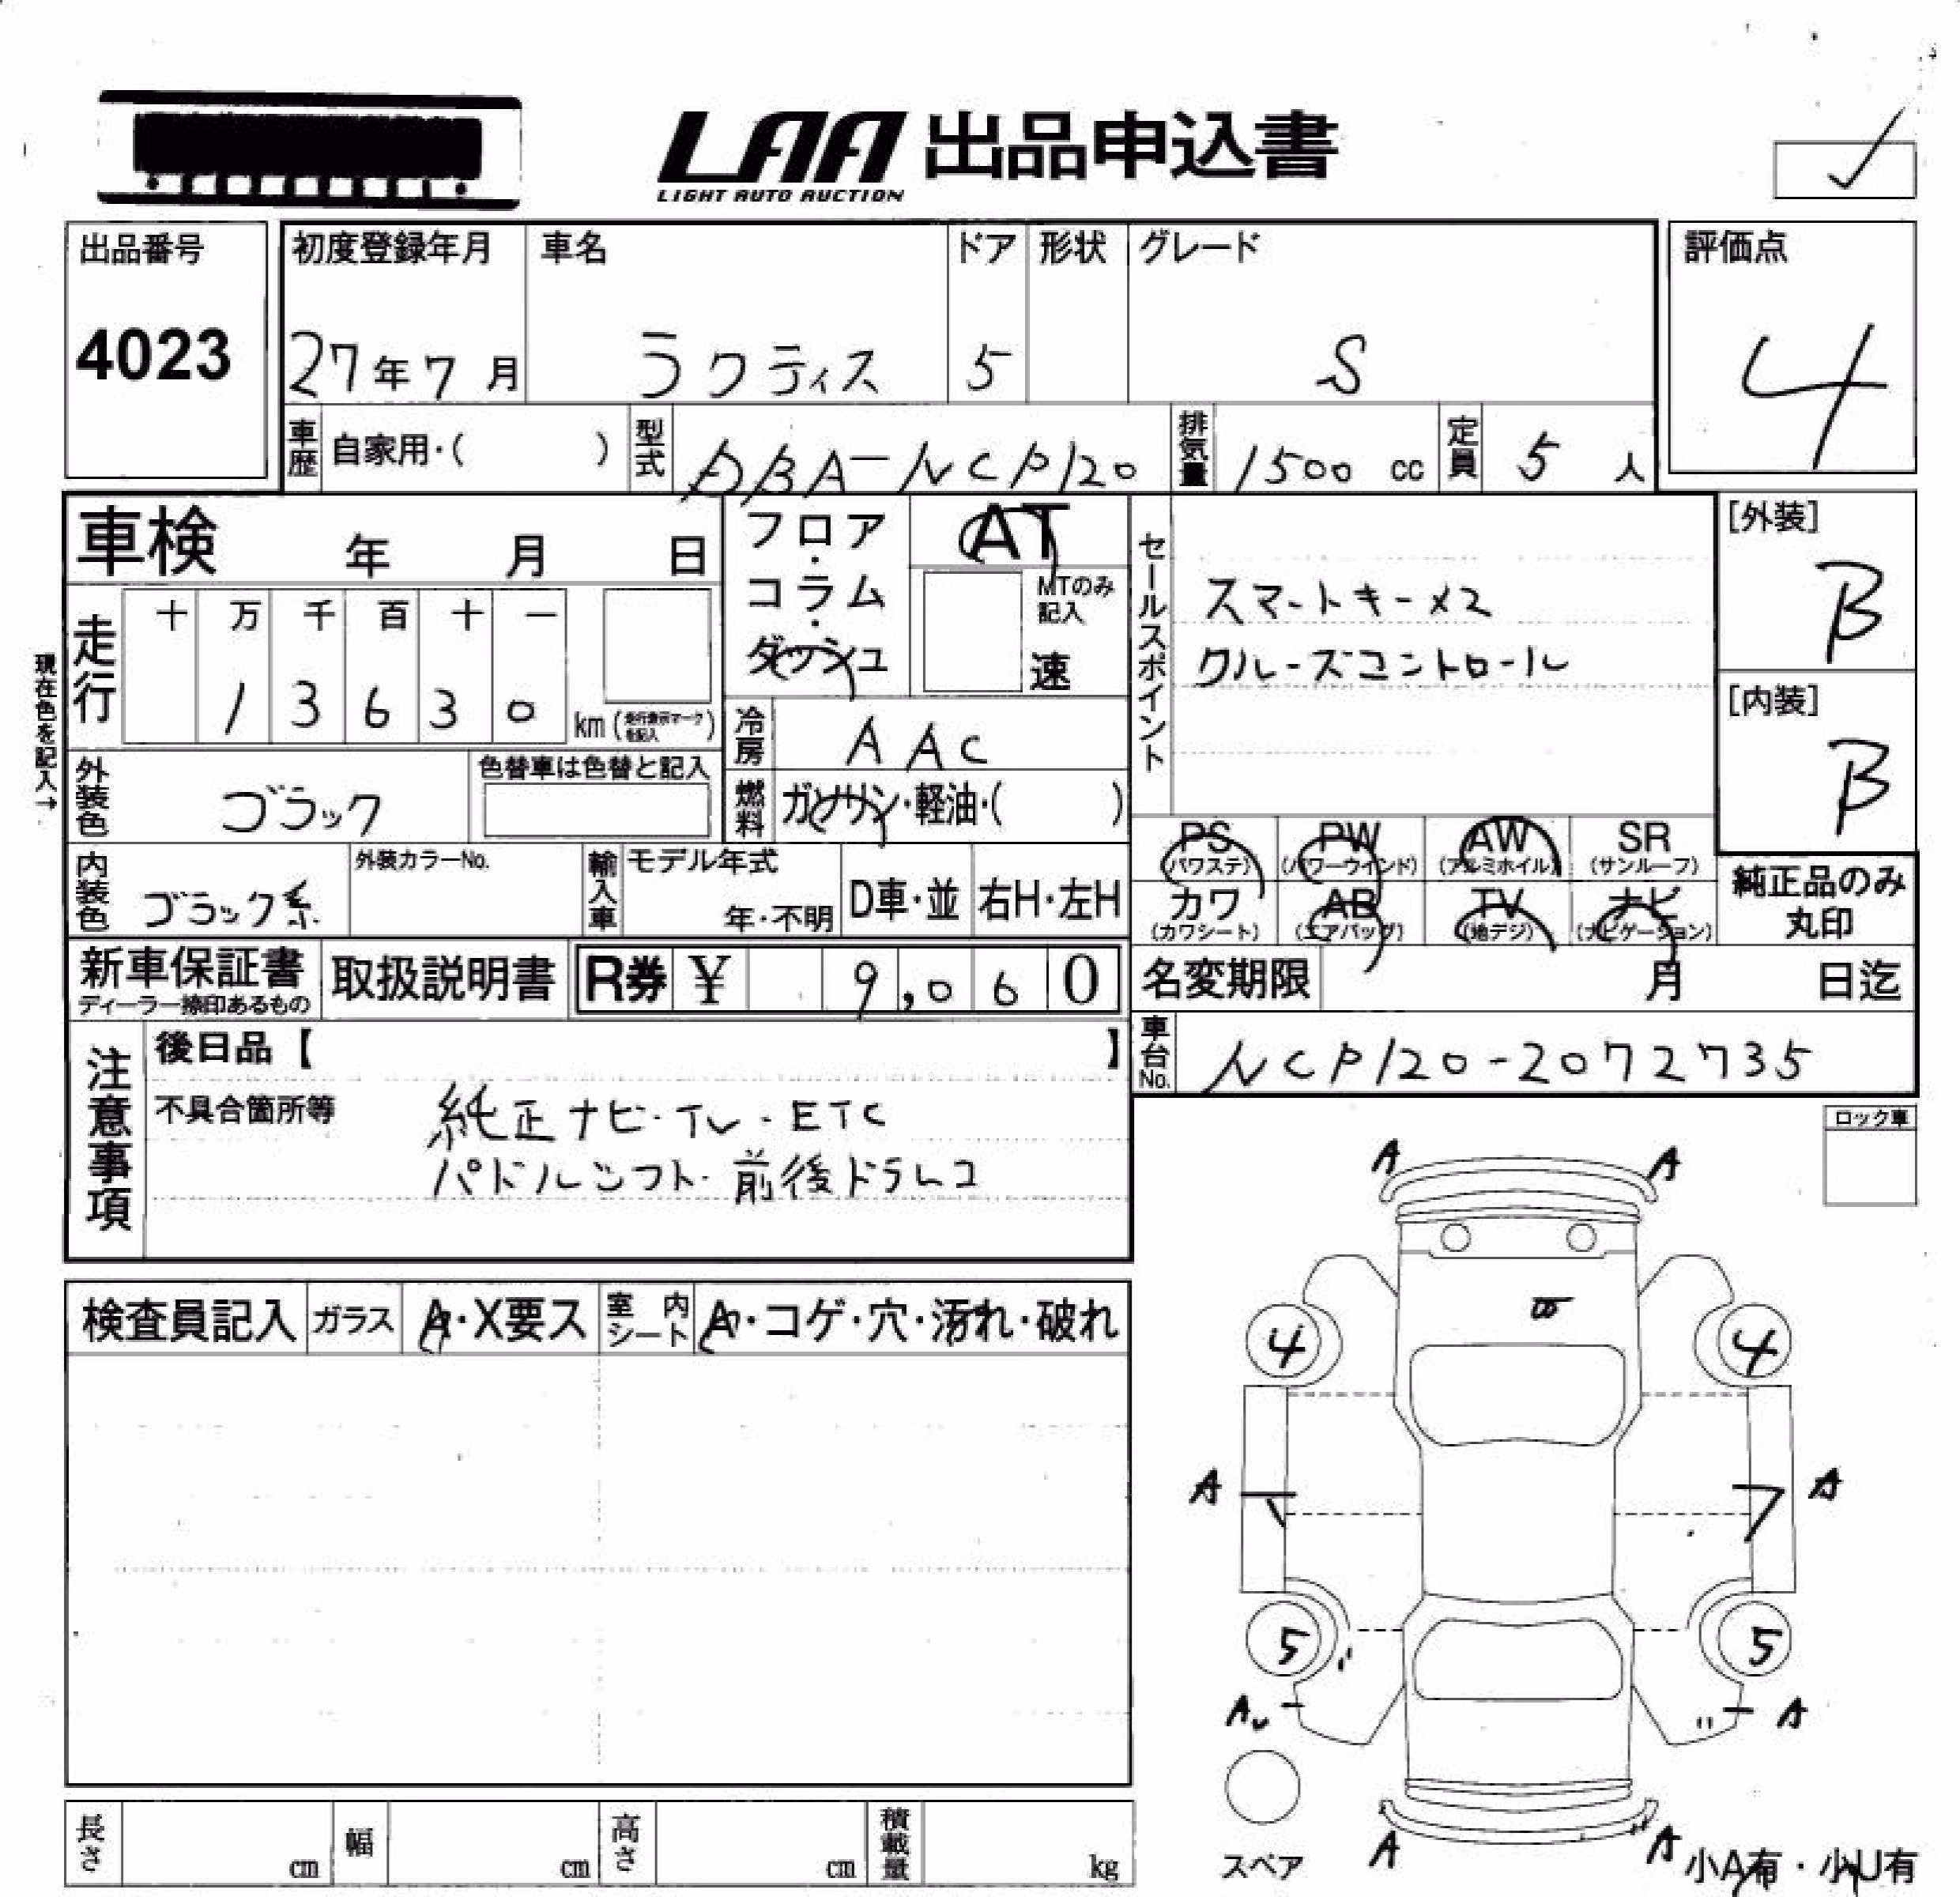 LAA 出品申込書
LIGHT AUTO AUCTION
出品番号
4023
初度登録年月
27年7月
車名
ラクティス
ドア
5
形状
グレード
S
評価点
4
車歴 自家用・( )
型式 DBA-NCP120
排気量 1500 cc
定員 5 人
車検 年 月 日
フロア・コラム・ダッシュ
AT
MTのみ記入
速
セールスポイント
スマートキー×2
クルーズコントロール
[外装]
B
[内装]
B
現在色を記入→
走行
十 万 千 百 十 一
1 3 6 3 0 km (走行表示マークを記入)
冷房 AAC
燃料 ガソリン・軽油・( )
外装色 ブラック
色替車は色替と記入
内装色 ブラック系
外装カラーNo.
輸入車 モデル年式
年・不明
D車・並
右H・左H
PS (パワステ)
PW (パワーウインド)
AW (アルミホイル)
SR (サンルーフ)
カワ (カワシート)
AB (エアバッグ)
TV (地デジ)
ナビ (ナビゲーション)
純正品のみ
丸印
新車保証書
ディーラー捺印あるもの
取扱説明書
R券 ¥ 9,060
名変期限 月 日迄
車台No. NCP120-2072735
注意事項
後日品【 】
不具合箇所等
純正ナビ・TV・ETC
パドルシフト・前後ドラレコ
ロック車
検査員記入
ガラス A・X要ス
室内シート A・コゲ・穴・汚れ・破れ
A A
4 4
A A
5 5
A A
A A
スペア
小A有・小U有
長さ cm
幅 cm
高さ cm
積載量 kg